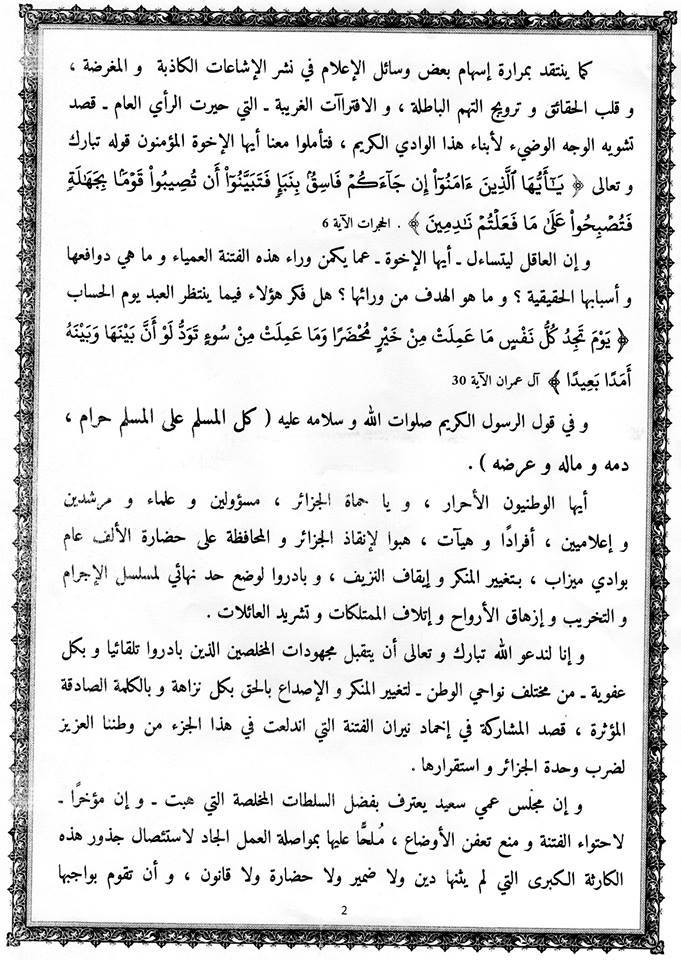 كما ينتقد بمرارة إسهام بعض وسائل الإعلام في نشر الإشاعات الكاذبة و المغرضة ،
و قلب الحقائق و ترويج التهم الباطلة ، و الافتراآت الغريبة ـ التي حيرت الرأي العام ـ قصد
تشويه الوجه الوضيء لأبناء هذا الوادي الكريم ، فتأملوا معنا أيها الإخوة المؤمنون قوله تبارك
و تعالى ﴿ يَٰٓأَيُّهَا ٱلَّذِينَ ءَامَنُوٓاْ إِن جَآءَكُمۡ فَاسِقُۢ بِنَبَإٖ فَتَبَيَّنُوٓاْ أَن تُصِيبُواْ قَوۡمَۢا بِجَهَٰلَةٖ
فَتُصۡبِحُواْ عَلَىٰ مَا فَعَلۡتُمۡ نَٰدِمِينَ ﴾ . الحجرات الآية 6
و إن العاقل ليتساءل ـ أيها الإخوة ـ عما يكمن وراء هذه الفتنة العمياء و ما هي دوافعها
و أسبابها الحقيقية ؟ و ما هو الهدف من ورائها ؟ هل فكر هؤلاء فيما ينتظر العبد يوم الحساب
﴿ يَوۡمَ تَجِدُ كُلُّ نَفۡسٖ مَّا عَمِلَتۡ مِنۡ خَيۡرٖ مُّحۡضَرٗا وَمَا عَمِلَتۡ مِن سُوٓءٖ تَوَدُّ لَوۡ أَنَّ بَيۡنَهَا وَبَيۡنَهُۥٓ
أَمَدَۢا بَعِيدٗا ﴾ آل عمران الآية 30
و في قول الرسول الكريم صلوات الله و سلامه عليه ( كل المسلم على المسلم حرام ،
دمه و ماله و عرضه ) .
أيها الوطنيون الأحرار ، و يا حماة الجزائر ، مسؤولين و علماء و مرشدين
و إعلاميين ، أفرادًا و هيآت ، هبوا لإنقاذ الجزائر و المحافظة على حضارة الألف عام
بوادي ميزاب ، بتغيير المنكر و إيقاف النزيف ، و بادروا لوضع حد نهائي لمسلسل الإجرام
و التخريب و إزهاق الأرواح و إتلاف الممتلكات و تشريد العائلات .
و إنا لندعو الله تبارك و تعالى أن يتقبل مجهودات المخلصين الذين بادروا تلقائيا و بكل
عفوية ـ من مختلف نواحي الوطن ـ لتغيير المنكر و الإصداع بالحق بكل نزاهة و بالكلمة الصادقة
المؤثرة ، قصد المشاركة في إخماد نيران الفتنة التي اندلعت في هذا الجزء من وطننا العزيز
لضرب وحدة الجزائر و استقرارها .
و إن مجلس عمي سعيد يعترف بفضل السلطات المخلصة التي هبت ـ و إن مؤخرًا ـ
لاحتواء الفتنة و منع تعفن الأوضاع ، مُلحًّا عليها بمواصلة العمل الجاد لاستئصال جذور هذه
الكارثة الكبرى التي لم يثنها دين ولا ضمير ولا حضارة ولا قانون ، و أن تقوم بواجبها
2